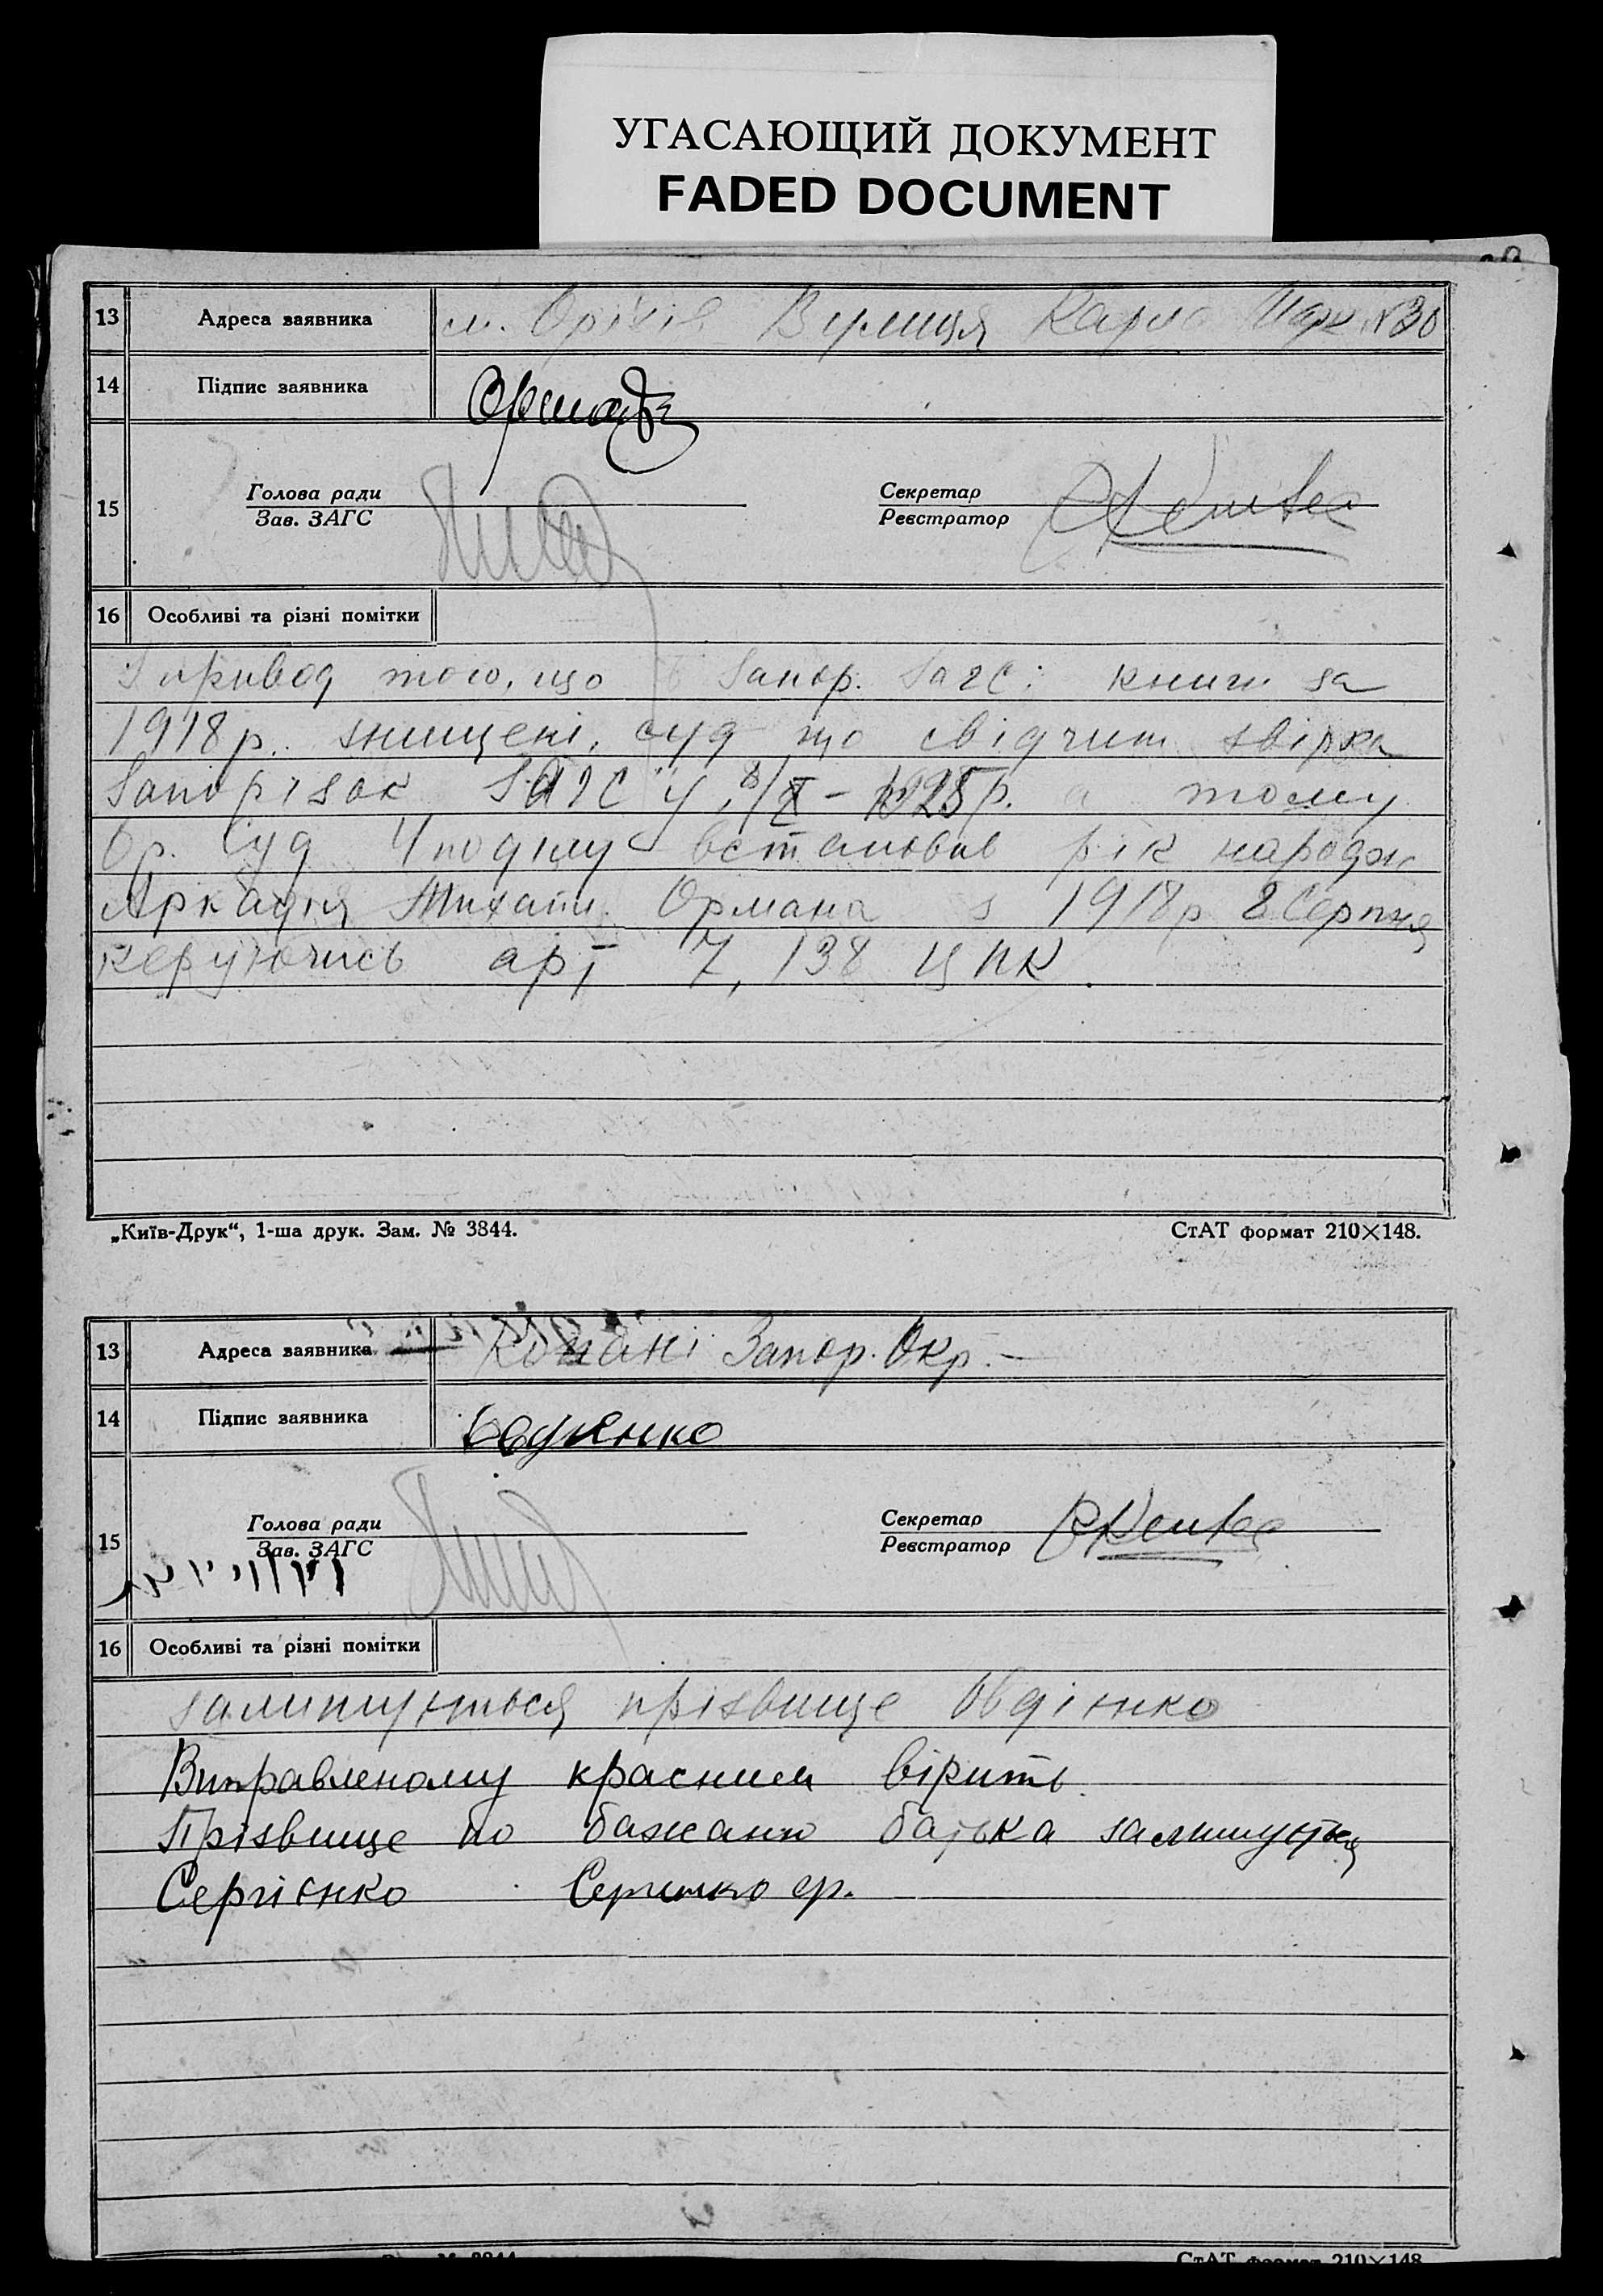 УГАСАЮЩИЙ ДОКУМЕНТ
FADED DOCUMENT
13 Адреса заявника м. Оріхів Вулиця Карла Марк. №30
14 Підпис заявника
15 Голова ради Секретар
Зав. ЗАГС Реєстратор
16 Особливі та різні помітки
З привод того, що в Запор. Загсі книги за
1918 р. знищені, суд що свідчит звірка
Запорізок ЗАГС'у, 8/X – 1925 р. а тому
Ор. Суд Уподілу встановив рік народж
Аркадія Михайл. Ормана з 1918 р 8 Серпня
керуючись арт 7, 138 ЦПК.
„Київ-Друк“, 1-ша друк. Зам. № 3844. СтАТ формат 210×148.
13 Адреса заявника Копані Запор. Окр. –
14 Підпис заявника
15 Голова ради Секретар
Зав. ЗАГС Реєстратор
16 Особливі та різні помітки
залишується прізвище Овдієнко
Виправленому красним вірить
Прізвище по бажанню батька залишується
Сергієнко
СтАТ формат 210×148